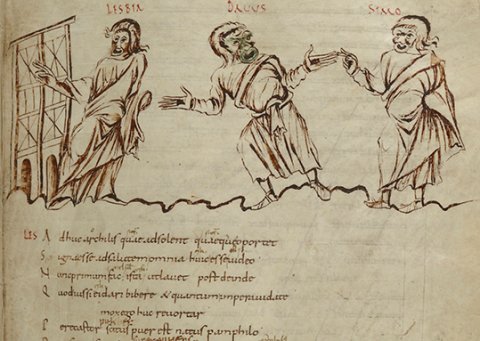 LESBIA DAVUS SIMO
LES Adhuc archilis quae adsolent quaeq; oportet
Signa esse ad salutem omnia huic esse video
fac ut lavet post deinde
Quod iussi ei dari bibere & quantum imperavi date
mox ego huc revertar
Percastor scitus puer est natus pamphilo